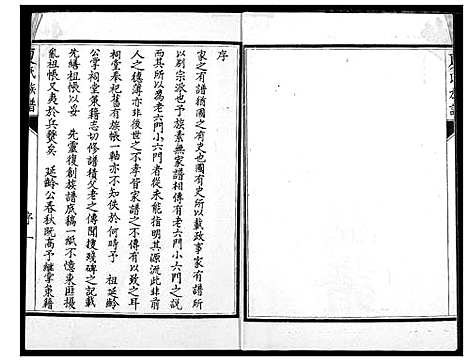 序
家之有譜猶國之有史也國有史所以載政事家有譜所
以別宗派也予族素無家譜相傳有老六門小六門之說
而其所以為老六門小六門者從未能指明其源流此非前
人之穗薄亦非後世之不孝皆家譜之不作有以致之耳
祠堂奉祀舊有族帳一軸亦不知佚於何時予 祖延齡
公掌祠堂葉籍志切修譜積父老之傳聞搜殘碑之記載
先繕祖帳以妥 先靈復創族譜底稿一紙不憶東匪擾
亂祖帳又夷於兵燹矣 延齡公春秋既高予繼掌葉籍
氏族譜
序 一